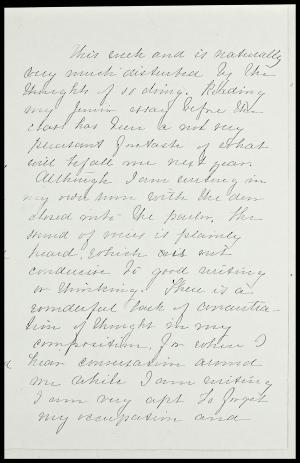 this week and is naturally
very much disturbed by the
thoughts of so doing. Reading
my Junior essay before the
class has been a not very
pleasant foretaste of what
will befall me next year.
Although I am writing in
my own room with the door
closed into the parlor, the
sound of voices is plainly
heard, which is not
conducive to good writing
or thinking. There is a
wonderful lack of concentra-
tion of thought in my
composition, for when I
hear conversation around
me while I am writing
I am very apt to forget
my occupation and